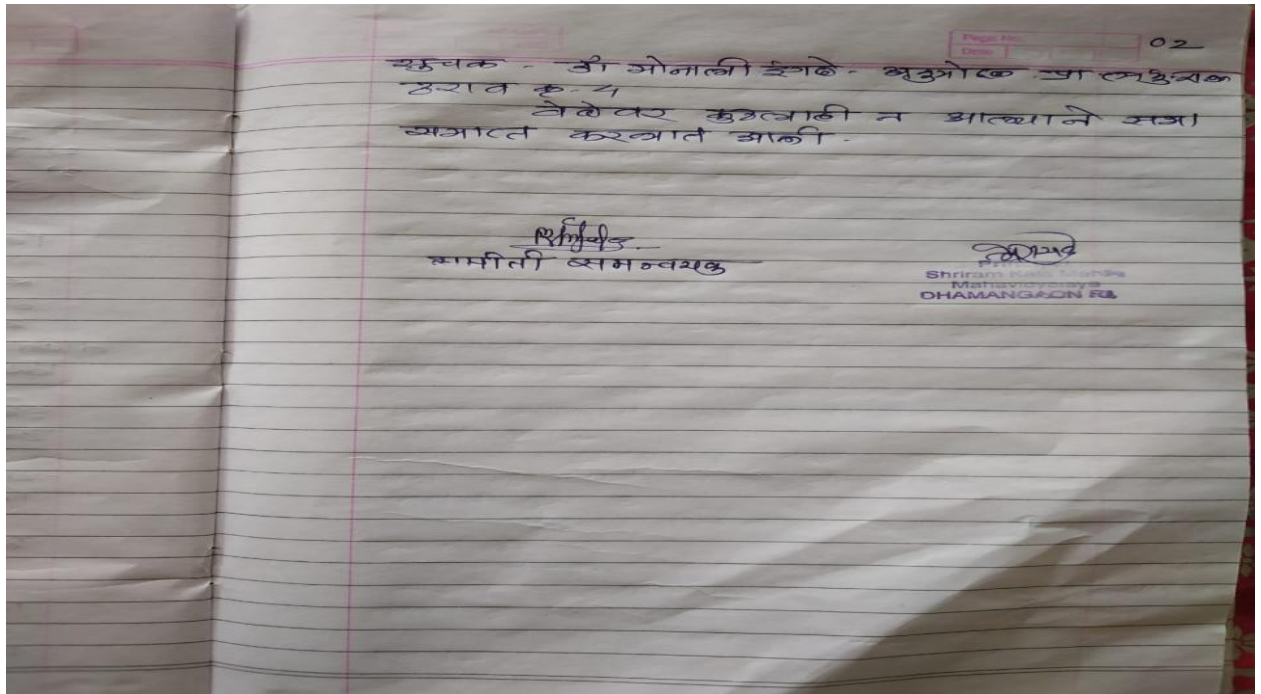 Page No. 02
Date
सूचक - डॉ मोनाली इंगळे - अनुमोदक - प्रा
ठराव क्र - 4
वेळेवर कुठलाही न आल्याने सभा
समाप्त करण्यात आली.
समीती समन्वयक
Shriram Kala Mahila
Mahavidyalaya
DHAMANGAON Rly.